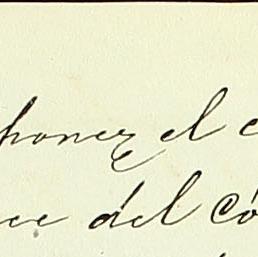 poner el c
ce del Có